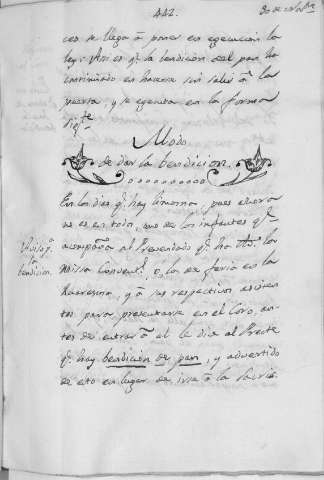 442.
ces se llega à poner en egecucion la
ley: Assi es qe. la bendicion del pan ha
continuado en hacerse sin salir à la
puerta, y se egecuta en la forma
sigte.
Modo
de dar la bendicion.
En los dias qe. hay limosna, pues ahora
no es en todos, uno de los infantes qe.
acompaña al Presendado qe. ha
Missa Convent l. ò los de feria en la
Quaresma, y à sus respectivos assien
tos para presentarse en el Coro, an-
tes de entrar à le dice al Preste
qe. hay bendicion de pan, y advertido
de esto en lugar de irse à la Sacris
bendicion.